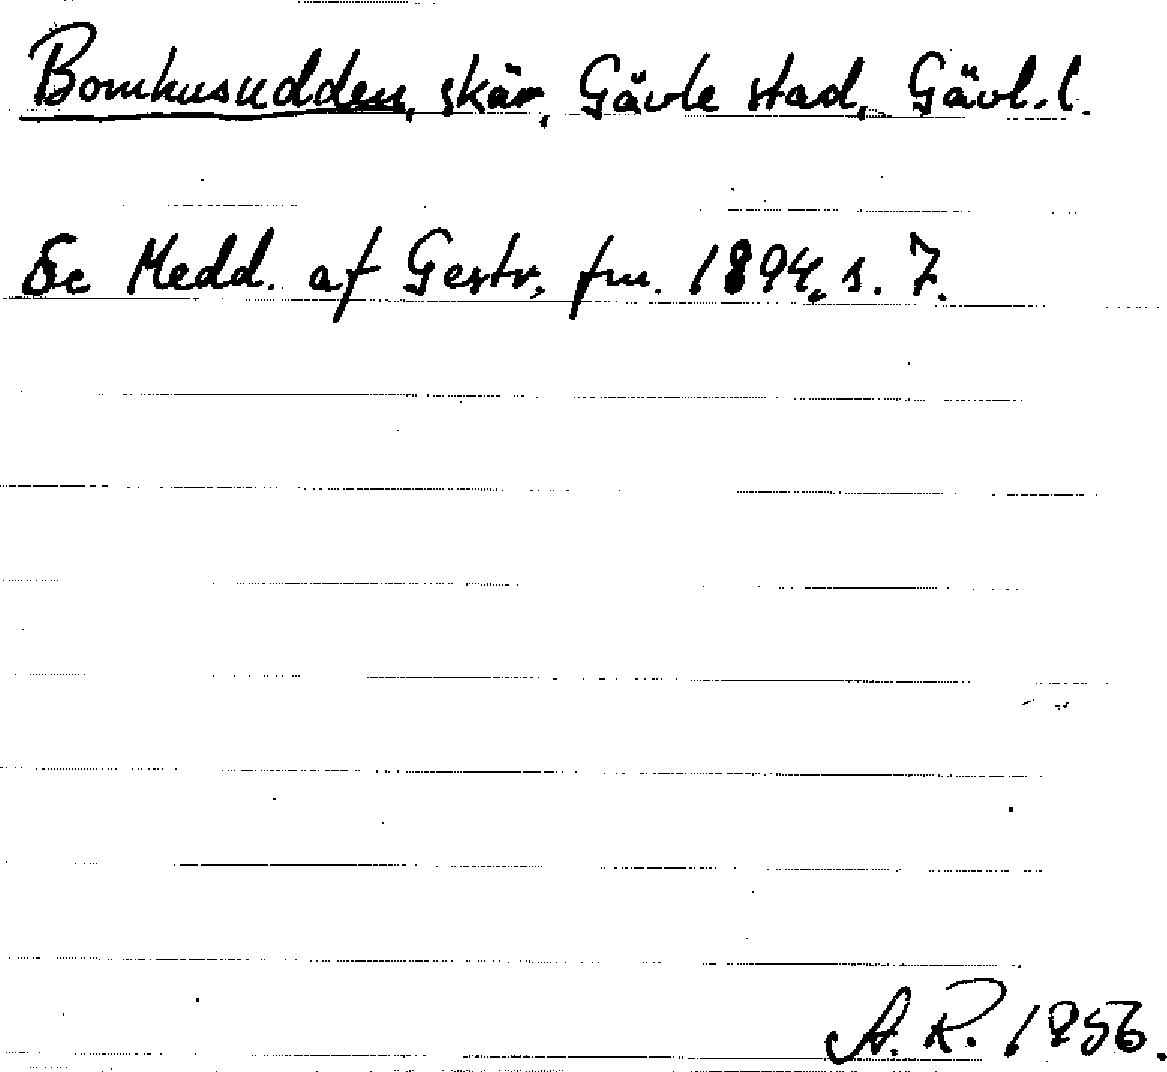 Bomhusudden, skär, Gävle stad, Gävl. l.
Se Medd. af Gestr. fm. 1894, s. 7.
A. R. 1956.